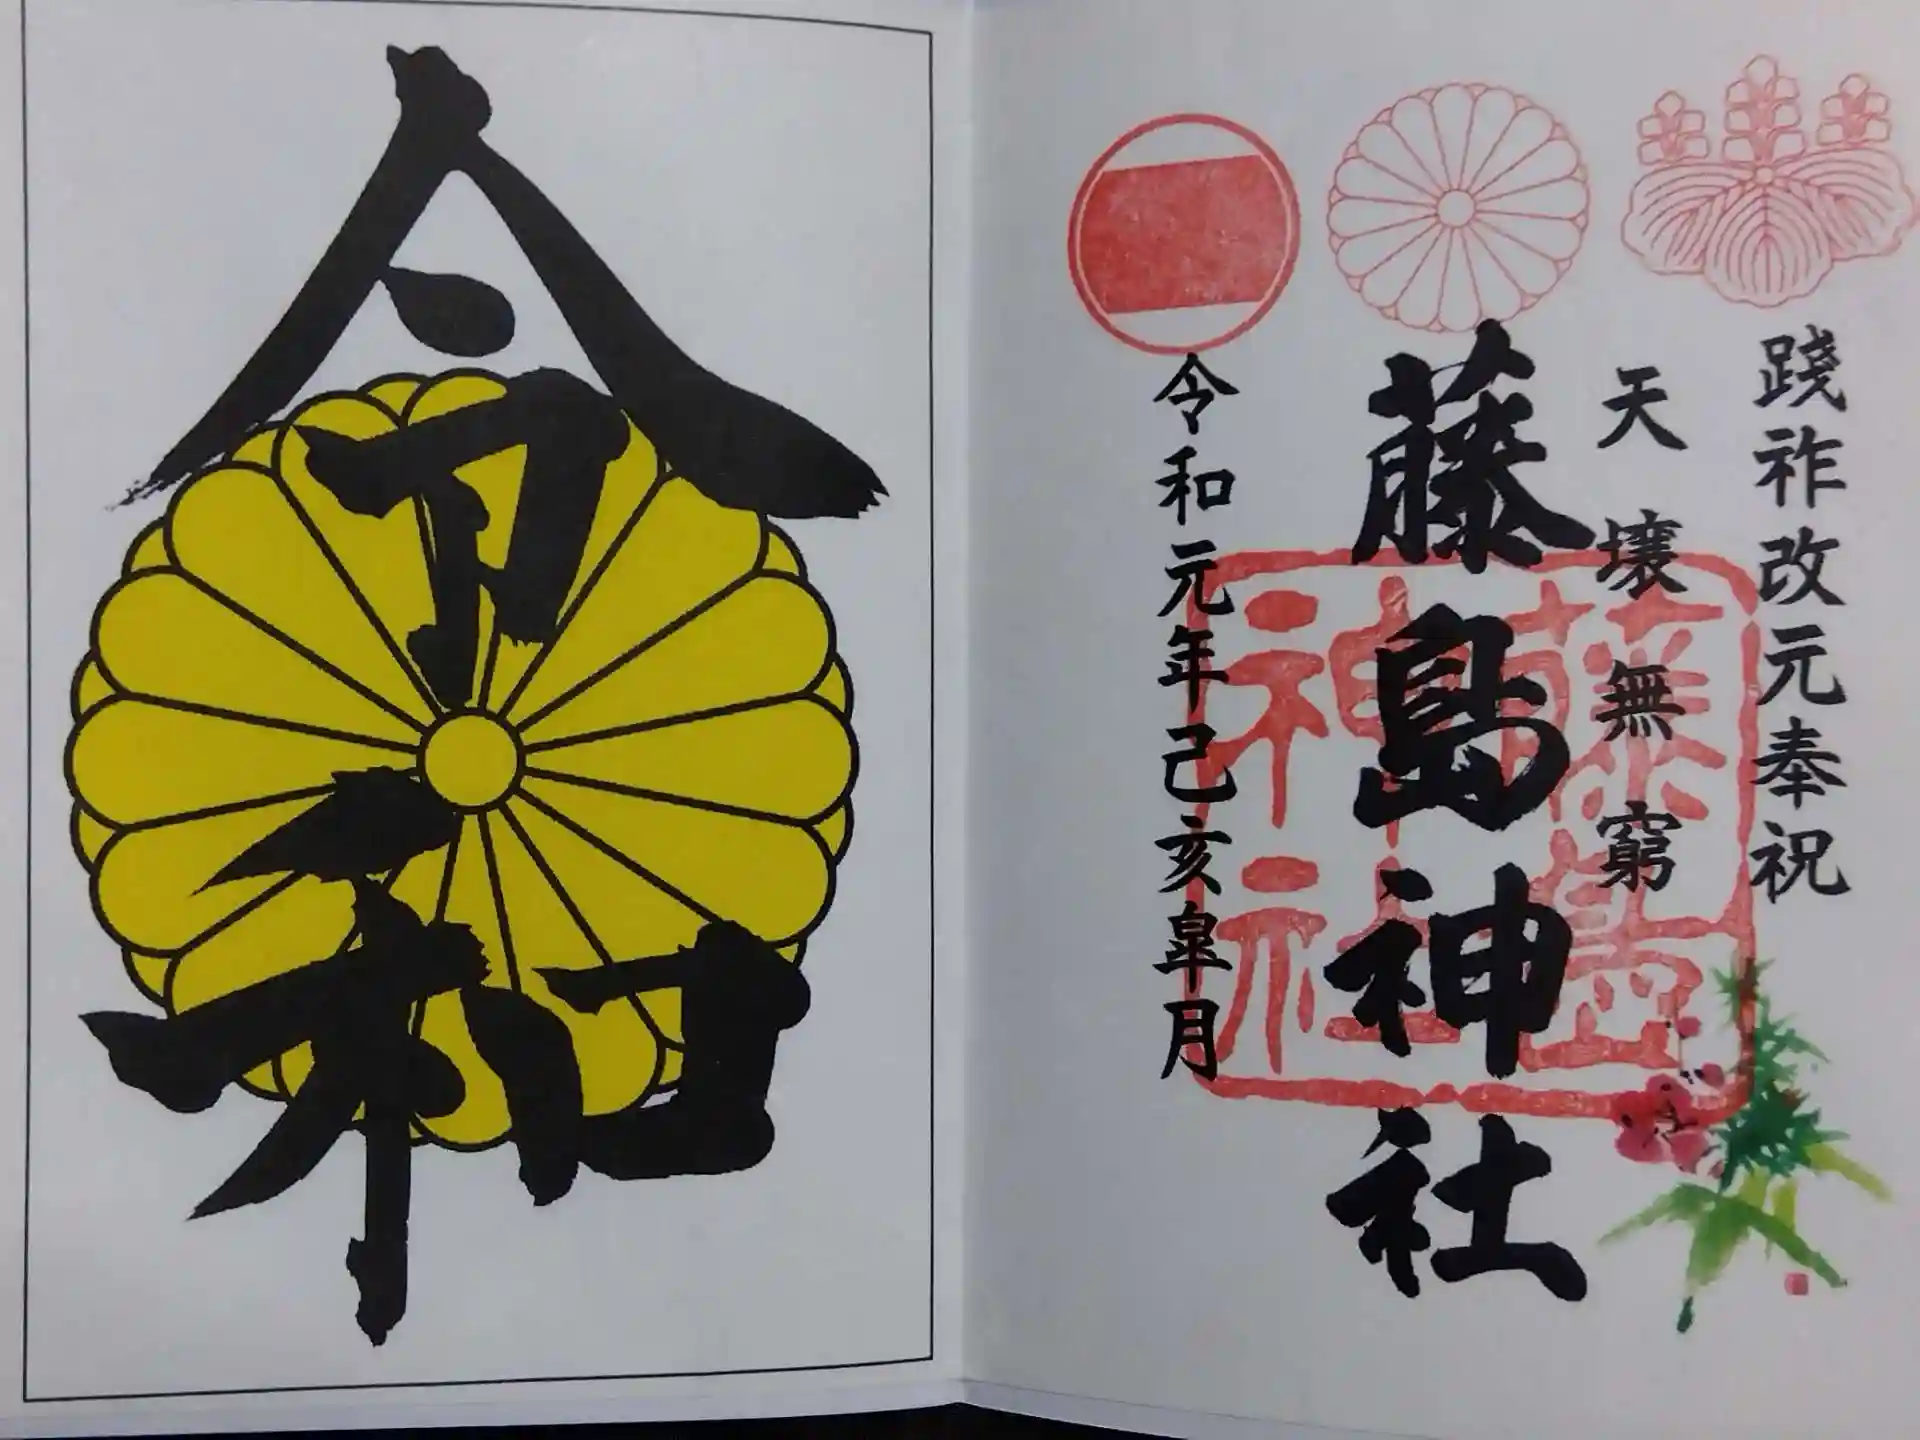 踐祚改元奉祝
天壌無窮
藤島神社
藤島神社
令和元年己亥皐月
令和